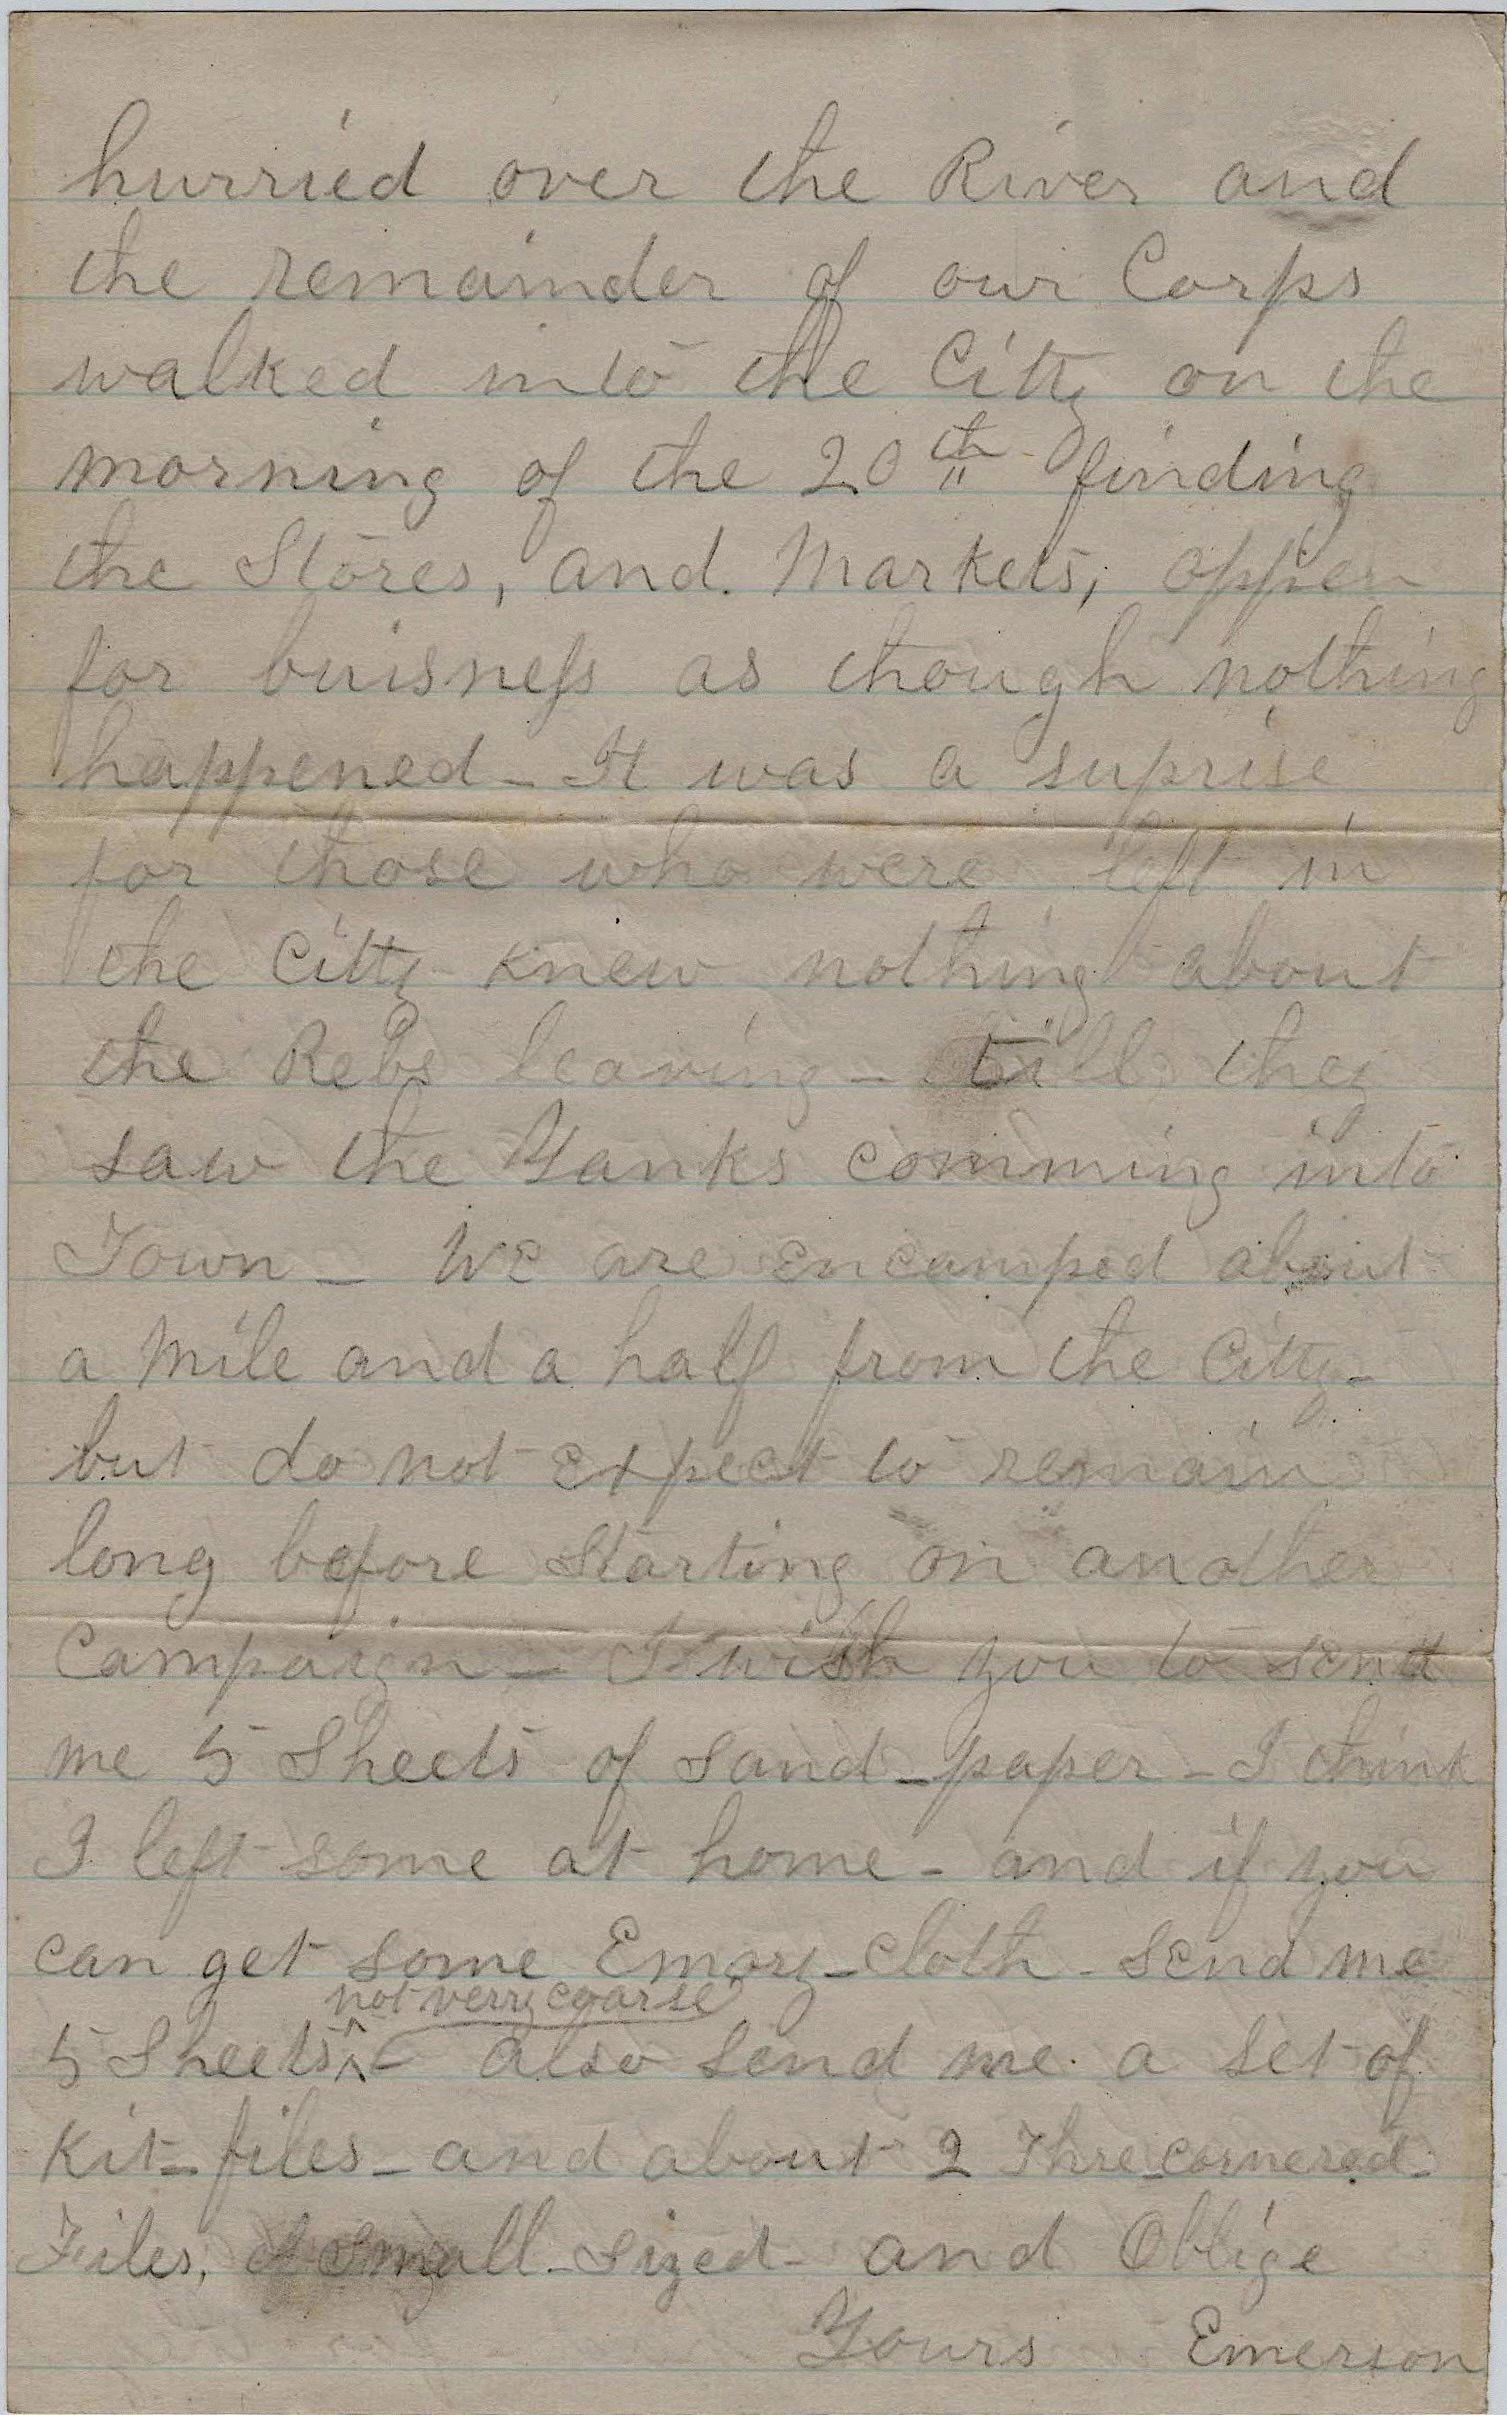 hurried over the River and
the remainder of our Corps
walked into the Citty on the
morning of the 20th finding
the Stores, and Markets, oppen
for buisness as though nothing
happened - It was a suprise
for those who were left in
the Citty knew nothing about
the Rebs leaving - till they
saw the Yanks comming into
Town - We are encamped about
a Mile and a half from the Citty -
but do not expect to remain
long before Starting on another
Campaign - I wish you to send
me 5 Sheets of Sand-paper - I think
I left some at home - and if you
can get some Emory-cloth - Send me
not verry coarse
5 Sheets ^ - also Send me a Set of
Kit-files - and about 2 Thre-cornered -
Files, Small-Sized - and Oblige
Yours Emerson